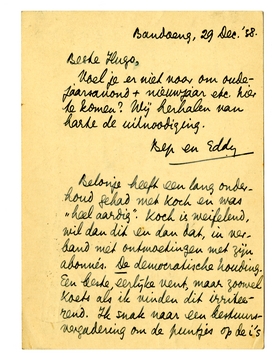 Bandoeng, 29 Dec. '38.
Beste Hugo,
Voel je er niet voor om oude-
jaarsavond + nieuwjaar etc. hier
te komen? Wij herhalen van
harte de uitnoodiging.
Bep en Eddy
Belonje heeft een lang onder-
houd gehad met Koch en was
"heel aardig". Koch is weifelend,
wil dan dit en dan dat, in ver-
band met ontmoetingen met zijn
abonné's. De democratische houding.
Een beste, eerlijke vent, maar zoowel
Koets als ik vinden dit irritee-
rend. Ik snak naar een bestuurs-
vergadering om de puntjes op de i's